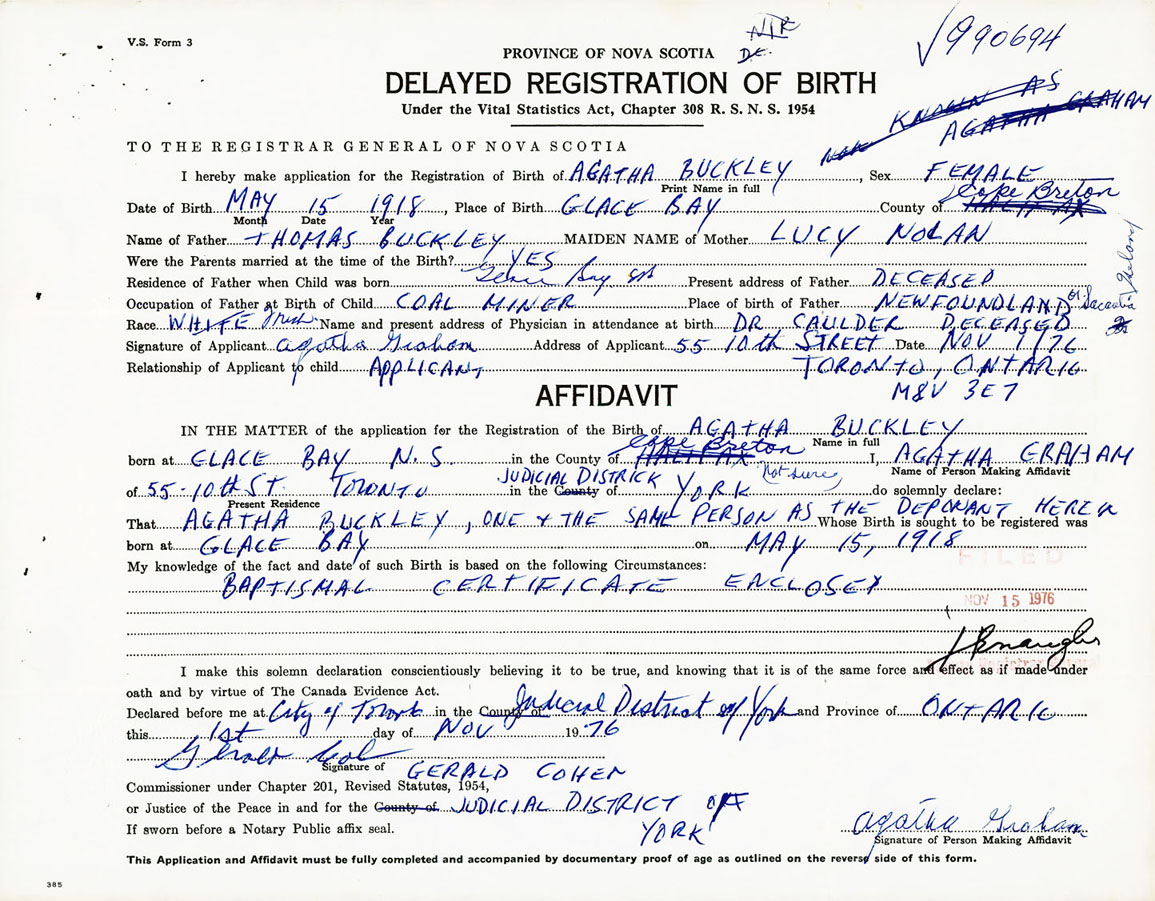 V.S. Form 3
990694
PROVINCE OF NOVA SCOTIA
DELAYED REGISTRATION OF BIRTH
Under the Vital Statistics Act, Chapter 308 R. S. N. S. 1954
KNOWN AS
AGATHA GRAHAM
TO THE REGISTRAR GENERAL OF NOVA SCOTIA
I hereby make application for the Registration of Birth of AGATHA BUCKLEY, Sex FEMALE
Print Name in full
Cape Breton
Date of Birth MAY 15 1918, Place of Birth GLACE BAY County of HALIFAX
Month Date Year
Name of Father THOMAS BUCKLEY MAIDEN NAME of Mother LUCY NOLAN
Were the Parents married at the time of the Birth? YES
Residence of Father when Child was born Glace Bay Present address of Father DECEASED
Occupation of Father at Birth of Child COAL MINER Place of birth of Father NEWFOUNDLAND
Race WHITE Irish Name and present address of Physician in attendance at birth DR CAULDER DECEASED
Signature of Applicant Agatha Graham Address of Applicant 55 10th STREET Date NOV 1/76
Relationship of Applicant to child APPLICANT TORONTO, ONTARIO
M8V 3E7
AFFIDAVIT
IN THE MATTER of the application for the Registration of the Birth of AGATHA BUCKLEY
Cape Breton Name in full
born at GLACE BAY N.S. in the County of HALIFAX I, AGATHA GRAHAM
JUDICIAL DISTRICK Not sure Name of Person Making Affidavit
of 55-10th ST. TORONTO in the County of YORK do solemnly declare:
Present Residence
That AGATHA BUCKLEY, ONE & THE SAME PERSON AS THE DEPONANT HEREIN Whose Birth is sought to be registered was
born at GLACE BAY on MAY 15, 1918
My knowledge of the fact and date of such Birth is based on the following Circumstances:
FILED
BAPTISMAL CERTIFICATE ENCLOSED
NOV 15 1976
I make this solemn declaration conscientiously believing it to be true, and knowing that it is of the same force and effect as if made under
oath and by virtue of The Canada Evidence Act.
Declared before me at City of Toronto in the County of Judicial District of York and Province of ONTARIO
this 1st day of NOV 1976
Signature of GERALD COHEN
Commissioner under Chapter 201, Revised Statutes, 1954,
or Justice of the Peace in and for the County of JUDICIAL DISTRICT OF
YORK
If sworn before a Notary Public affix seal.
Agatha Graham
Signature of Person Making Affidavit
This Application and Affidavit must be fully completed and accompanied by documentary proof of age as outlined on the reverse side of this form.
385